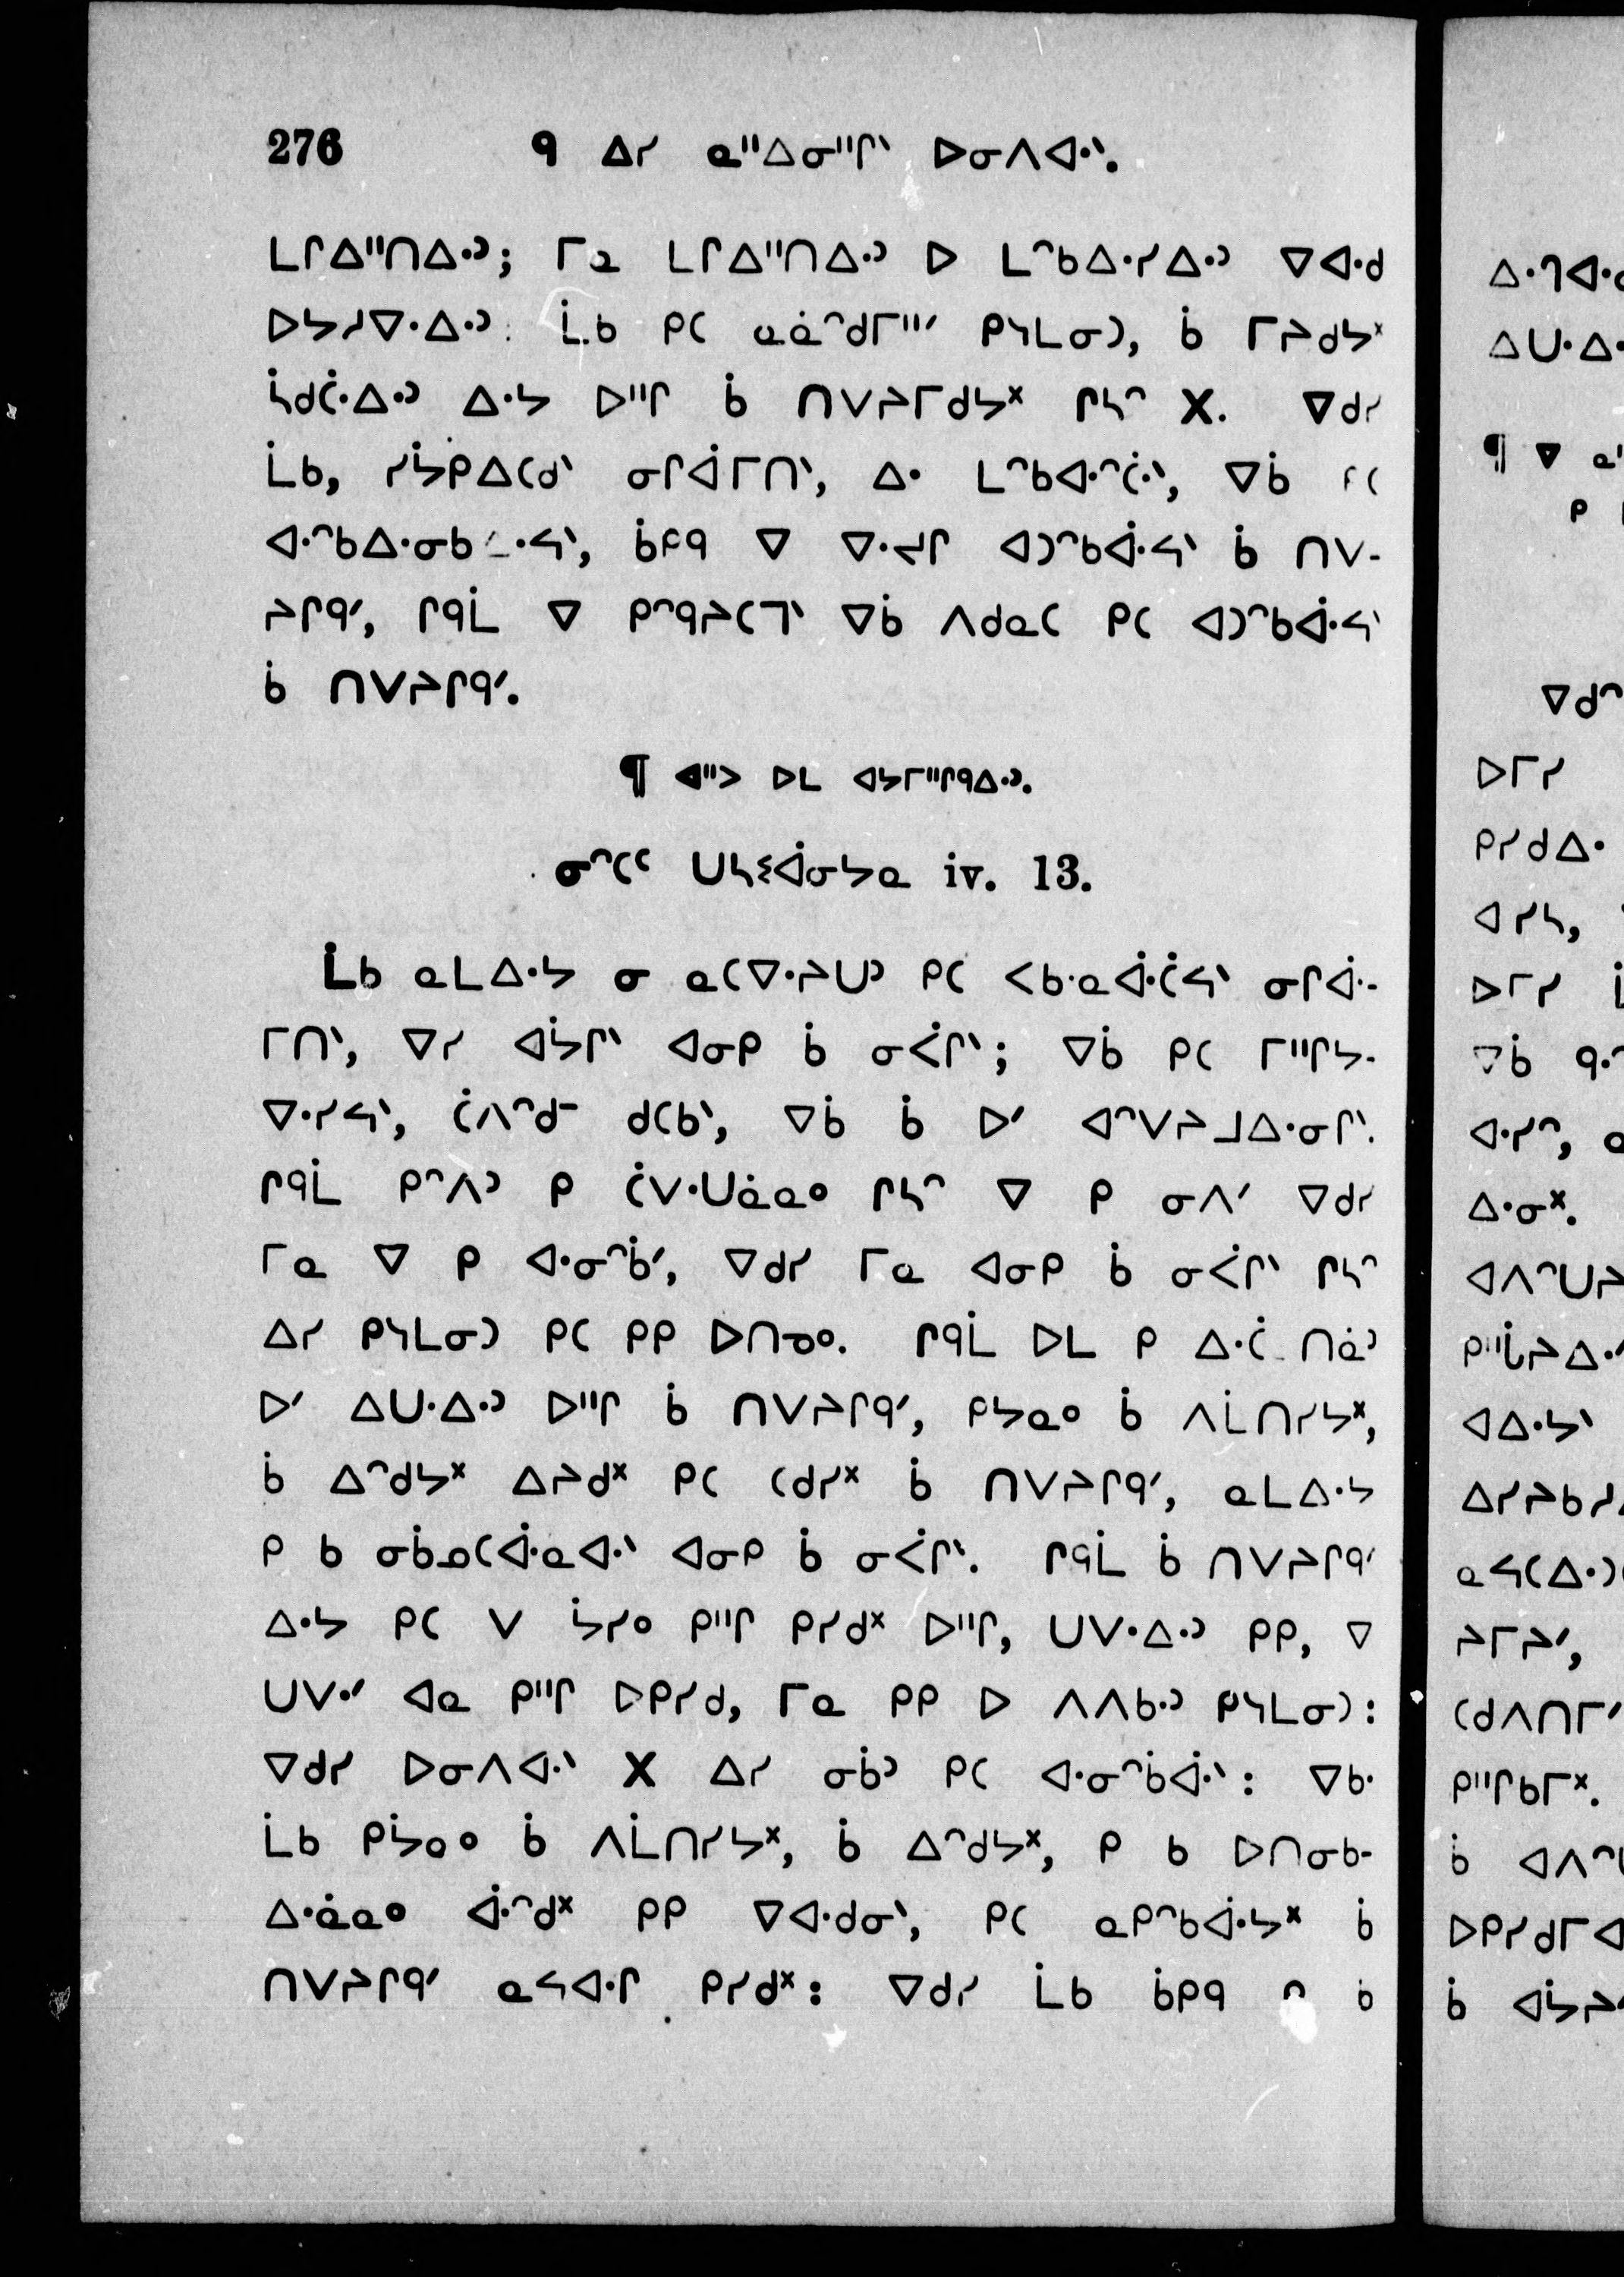 276 ᑫ ᐃᓯ ᓇᐦᐃᓂᐦᒋᐠ ᐅᓂᐱᐊᐧᐠ.
ᒪᒋᐃᐦᑎᐃᐧᐣ; ᒥᓇ ᒪᒋᐃᐦᑎᐃᐧᐣ ᐅ ᒪᐢᑲᐃᐧᓯᐃᐧᐣ ᐁᐊᐧᑯ
ᐅᔭᓱᐁᐧᐃᐧᐣ. ᒫᑲ ᑭᑕ ᓇᓈᐢᑯᒥᐦᐟ ᑭᓴᒪᓂᑐ, ᑳ ᒥᔨᑯᔭᕽ
ᓵᑯᑖᐧᐃᐧᐣ ᐃᐧᔭ ᐅᐦᒋ ᑳ ᑎᐯᔨᒥᑯᔭᕽ ᒋᓴᐢ ᕽ. ᐁᑯᓯ
ᒫᑲ, ᓯᔮᑭᐃᑕᑯᐠ ᓂᒋᐚᒥᑎᐠ, ᐃᐧ ᒪᐢᑲᐊᐧᐢᑖᐧᐠ, ᐁᑳ
ᐊᐧᐢᑲᐃᐧᓂᑲ ᑳᑭᑫ ᐁ ᐁᐧᔪᒋ ᐊᑐᐢᑲᐚᔦᐠ ᑳ ᑎᐯ-
ᔨᒋᑫᐟ, ᒋᑫᒫ ᐁ ᑭᐢᑫᔨᑕᒣᐠ ᐁᑳ ᐱᑯᓇᑕ ᑭᑕ ᐊᑐᐢᑲᐚᔦᐠ
ᑳ ᑎᐯᔨᒋᑫᐟ.
¶ ᐊᐦᐳ ᐅᒪ ᐊᔭᒥᐦᒋᑫᐃᐧᐣ.
ᓂᐢᑕᑦ ᑌᓴᓬᐚᓂᔭᓇ iv. 13.
ᒫᑲ ᓇᒪᐃᐧᔭ ᓂ ᓇᑕᐁᐧᔨᑌᐣ ᑭᑕ ᐸᑲᐧᓇᐚᑖᔦᐠ ᓂᒋᐚ-
ᒥᑎᐠ, ᐁᓯ ᐊᔮᒋᐠ ᐊᓂᑭ ᑳ ᓂᐹᒋᐠ; ᐁᑳ ᑭᑕ ᒥᐦᒋᔭ-
ᐁᐧᓯᔦᐠ, ᑖᐱᐢᑯᐨ ᑯᑕᑲᐠ, ᐁᑳ ᑳ ᐅᐟ ᐊᐢᐯᔨᒧᐃᐧᓂᒋᐠ.
ᒋᑫᒫ ᑭᐢᐱᐣ ᑭ ᑖᐯᐧᑌᓈᓇᐤ ᒋᓴᐢ ᐁ ᑭ ᓂᐱᐟ ᐁᑯᓯ
ᒥᓇ ᐁ ᑭ ᐊᐧᓂᐢᑳᐟ, ᐁᑯᓯ ᒥᓇ ᐊᓂᑭ ᑳ ᓂᐹᒋᐠ ᒋᓴᐢ
ᐃᓯ ᑭᓴᒪᓂᑐ ᑭᑕ ᑭᑭ ᐅᑎᓀᐤ. ᒋᑫᒫ ᐅᒪ ᑭ ᐃᐧᑖ ᑎᓈᐣ
ᐅᐟ ᐃᑌᐧᐃᐧᐣ ᐅᐦᒋ ᑳ ᑎᐯᔨᒋᑫᐟ, ᑭᔭᓇᐤ ᑳ ᐱᒫᑎᓯᔭᕽ,
ᑳ ᐃᐢᑯᔭᕽ ᐃᔨᑯᕽ ᑭᑕ ᑕᑯᓯᕽ ᑳ ᑎᐯᔨᒋᑫᐟ, ᓇᒪᐃᐧᔭ
ᑭ ᑲ ᓂᑳᓄᑕᐚᓇᐊᐧᐠ ᐊᓂᑭ ᑳ ᓂᐹᒋᐠ. ᒋᑫᒫ ᑳ ᑎᐯᔨᒋᑫᐟ
ᐃᐧᔭ ᑭᑕ ᐯ ᔮᓯᐤ ᑭᐦᒋ ᑭᓯᑯᕽ ᐅᐦᒋ, ᑌᐯᐧᐃᐧᐣ ᑭᑭ, ᐁ
ᑌᐯᐧᐟ ᐊᓇ ᑭᐦᒋ ᐅᑭᓯᑯ, ᒥᓇ ᑭᑭ ᐅ ᐱᐱᑲᐧᐣ ᑭᓴᒪᓂᑐ:
ᐁᑯᓯ ᐅᓂᐱᐊᐧᐠ ᕽ ᐃᓯ ᓂᑳᐣ ᑭᑕ ᐊᐧᓂᐢᑳᐚᐠ: ᐁᑲᐧ
ᒫᑲ ᑭᔮᓇᐤ ᑳ ᐱᒫᑎᓯᔭᕽ, ᑳ ᐃᐢᑯᔭᕽ, ᑭ ᑲ ᐅᑎᓂᑲ-
ᐃᐧᓈᓇᐤ ᐚᐢᑯᕽ ᑭᑭ ᐁᐊᐧᑯᓂᐠ, ᑭᑕ ᓇᑭᐢᑲᐚᔭᕽ ᑳ
ᑎᐯᔨᒋᑫᐟ ᓇᔦᐊᐧᒋ ᑭᓯᑯᕽ: ᐁᑯᓯ ᒫᑲ ᑳᑭᑫ ᑭ ᑲ